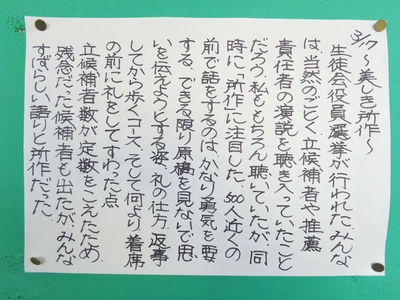 3/17 ～美しき所作～
生徒会役員選挙が行われた。みんな
は、当然のごとく立候補者や推薦
責任者の演説を聴き入っていたこと
だろう。私ももちろん聴いていたが、同
時に「所作」に注目した。500人近くの
前で話をするのはかなり勇気を要
する。できる限り原稿を見ないで思
いを伝えようとする姿、礼の仕方、返事
してから歩くコース、そして何より着席
の前に礼をしてすわった点。
立候補者数が定数をこえたため、
残念だった候補者も出たが、みんな
すばらしい語りと所作だった。